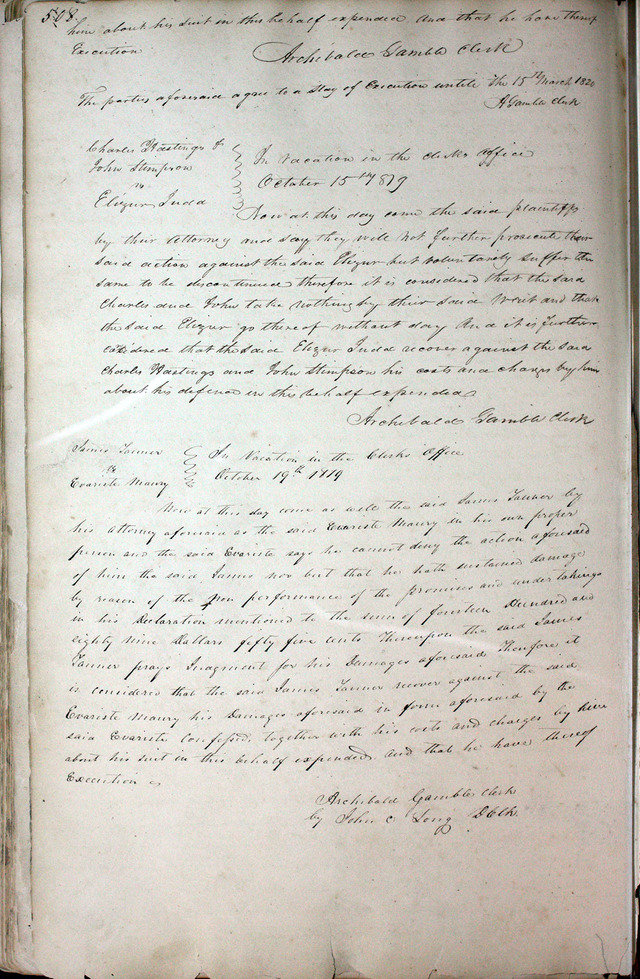 508.
him about his suit in this behalf expended and that he have thereof
Execution
Archibald Gamble Clerk
The parties aforesaid agree to a Stay of Execution untill the 15th March 1820
A Gamble Clerk
Charles Hastings &
John Stimpson
vs
Elizur Judd
In Vacation in the clerks office
October 15th 1819
Now at this day come the said plaintiffs
by their Attorney and say they will not further prosecute their
said action against the said Elizur but voluntarily suffer the
same to be discontinued therefore it is considered that the said
Charles and John take nothing by their said Writ and that
the said Elizur go thereof without day And it is further
considered that the said Elizur Judd recover against the said
Charles Hastings and John Stimpson his costs and charges by him
about his defence in this behalf expended
Archibald Gamble Clerk
James Tanner
vs
Evariste Maury
In Vacation in the Clerks Office
October 19th 1819
Now at this day come as well the said James Tanner by
his Attorney aforesaid as the said Evariste Maury in his own proper
person and the said Evariste says he cannot deny the action aforesaid
of him the said James nor but that he hath sustained damage
by reason of the non performance of the promises and undertakings
in his Declaration mentioned to the sum of fourteen Hundred and
eighty nine Dollars fifty five cents Thereupon the said James
Tanner prays Judgment for his Damages aforesaid Therefore it
is considered that the said James Tanner recover against the said
Evariste Maury his Damages aforesaid in form aforesaid by the
said Evariste Confessed together with his costs and charges by him
about his suit in this behalf expended and that he have thereof
Execution &
Archibald Gamble Clerk
by John C Long DClk